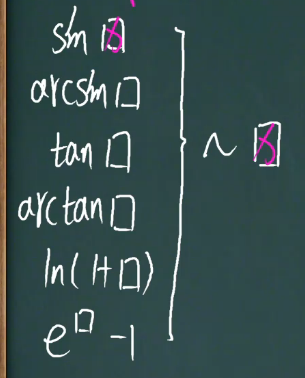 sin □
arcsin □
tan □
arctan □
ln(1+□)
e^□ -1
~ □